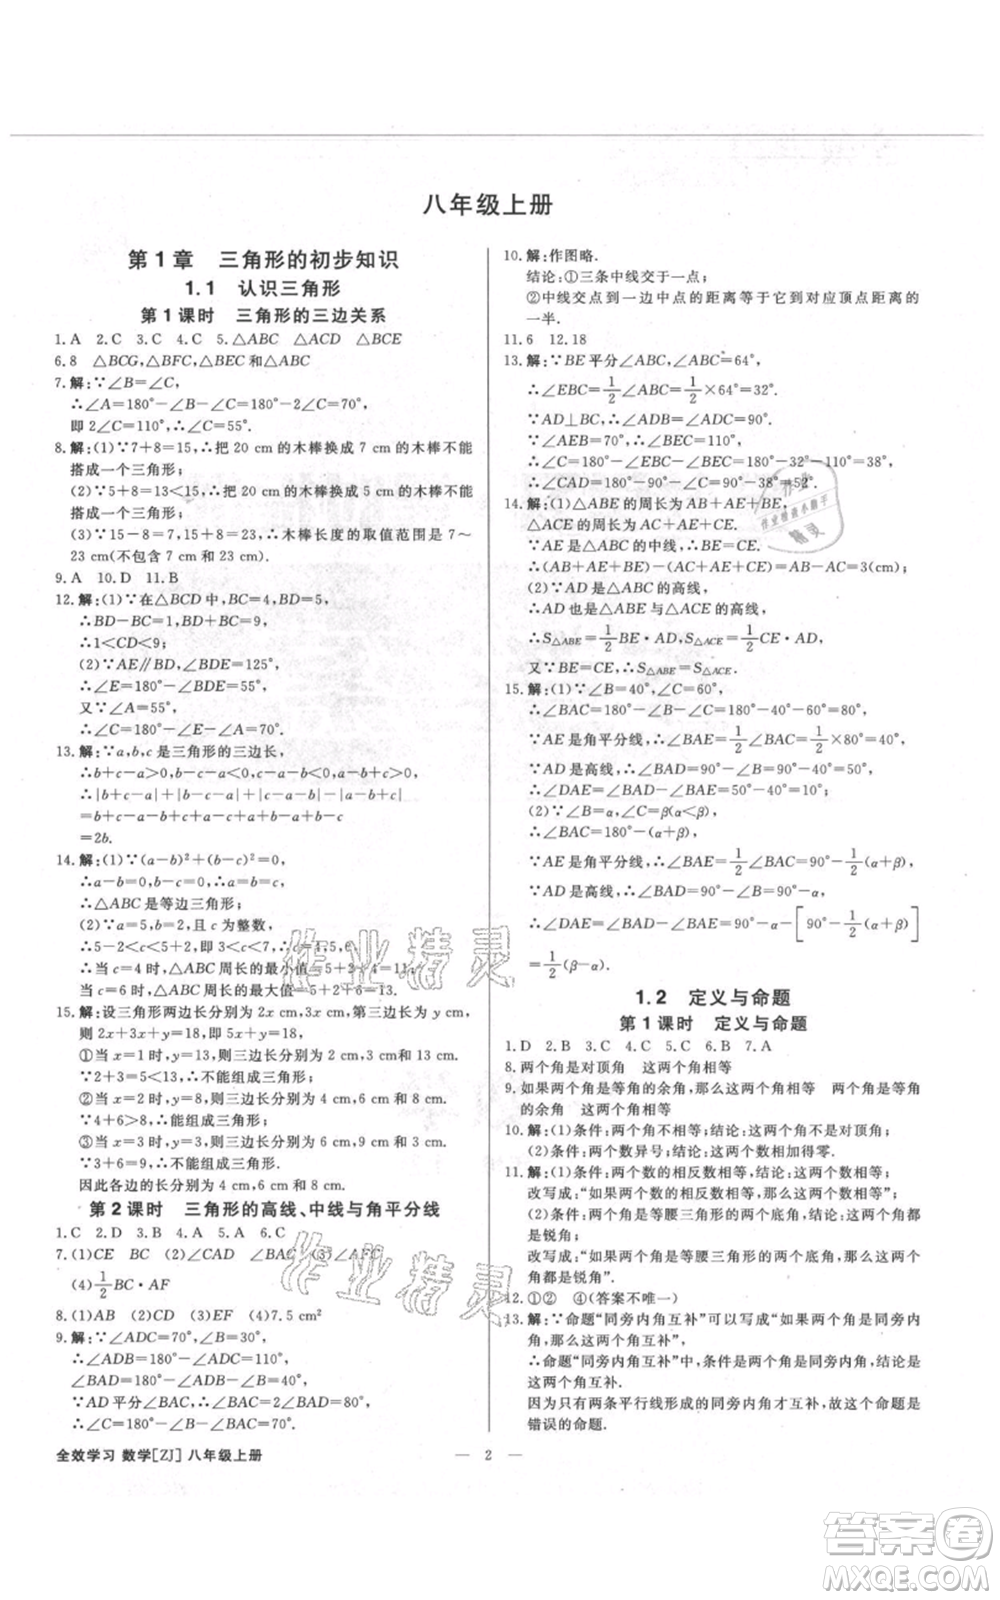 八年级上册
第1章 三角形的初步知识
1.1 认识三角形
第1课时 三角形的三边关系
1.A 2.C 3.C 4.C 5.△ABC △ACD △BCE
6.8 △BCG,△BFC,△BEC和△ABC
7.解:∵∠B=∠C,
∴∠A=180°-∠B-∠C=180°-2∠C=70°,
即2∠C=110°,∴∠C=55°.
8.解:(1)∵7+8=15,∴把20 cm的木棒换成7 cm的木棒不能
搭成一个三角形;
(2)∵5+8=13<15,∴把20 cm的木棒换成5 cm的木棒不能
搭成一个三角形;
(3)∵15-8=7,15+8=23,∴木棒长度的取值范围是7~
23 cm(不包含7 cm和23 cm).
9.A 10.D 11.B
12.解:(1)∵在△BCD中,BC=4,BD=5,
∴BD-BC=1,BD+BC=9,
∴1<CD<9;
(2)∵AE∥BD,∠BDE=125°,
∴∠E=180°-∠BDE=55°,
又∵∠A=55°,
∴∠C=180°-∠E-∠A=70°.
13.解:∵a,b,c是三角形的三边长,
∴b+c-a>0,b-c-a<0,c-a+b>0,
∴|b+c-a|+|b-c-a|-|c-a+b|
=b+c-a-b+c+a-c+a-b+c
=2b.
14.解:(1)∵(a-b)²+(b-c)²=0,
∴a-b=0,b-c=0,∴a=b=c,
∴△ABC是等边三角形;
(2)∵a=5,b=2,且c为整数,
∴5-2<c<5+2,即3<c<7,∴c=4,5,6,
∴当c=4时,△ABC周长的最小值=5+2+4=11;
当c=6时,△ABC周长的最大值=5+2+6=13.
15.解:设三角形两边长分别为2x cm,3x cm,第三边长为y cm,
则2x+3x+y=18,∴y=18-5x.
①当x=1时,y=13,则三边长分别为2 cm,3 cm,13 cm.
∵2+3<13,∴不能组成三角形;
②当x=2时,y=8,则三边长分别为4 cm,6 cm,8 cm.
∵4+6>8,∴能组成三角形;
③当x=3时,y=3,则三边长分别为6 cm,9 cm,3 cm.
∵3+6=9,∴不能组成三角形.
因此各边的长分别为4 cm,6 cm,8 cm.
第2课时 三角形的高线、中线与角平分线
1.C 2.D 3.B 4.A 5.A 6.C
7.(1)CE BC (2)∠CAD ∠BAC (3)∠AFC
(4)1/2BC·AF
8.(1)AB (2)CD (3)EF (4)7.5 cm²
9.解:∵∠ADC=70°,∠B=30°,
∴∠ADB=180°-∠ADC=110°,
∴∠BAD=180°-∠B-∠ADB=40°.
∵AD平分∠BAC,∴∠BAC=2∠BAD=80°,
∴∠C=180°-∠B-∠BAC=70°.
10.解:作图略.
结论:①三条中线交于一点;
②中线交点到一边中点的距离等于它到对应顶点距离的
一半.
11.6 12.18
13.解:∵BE平分∠ABC,∠ABC=64°,
∴∠EBC=1/2∠ABC=1/2×64°=32°.
∵AD⊥BC,∴∠ADB=∠ADC=90°.
∵∠AEB=70°,
∴∠C=180°-∠EBC-∠BEC=180°-32°-110°=38°,
∴∠CAD=180°-∠ADC-∠C=180°-90°-38°=52°.
14.解:(1)△ABE的周长为AB+AE+BE,
△ACE的周长为AC+AE+CE.
∵AE是△ABC的中线,∴BE=CE,
∴(AB+AE+BE)-(AC+AE+CE)=AB-AC=2;
(2)∵AD是△ABC的高线,
∴AD也是△ABE与△ACE的高线,
∴S△ABE=1/2BE·AD,S△ACE=1/2CE·AD,
又∵BE=CE,∴S△ABE=S△ACE.
15.解:(1)∵∠B=40°,∠C=60°,
∴∠BAC=180°-∠B-∠C=80°.
∵AE是角平分线,∴∠BAE=1/2∠BAC=1/2×80°=40°.
∵AD是高线,∴∠BAD=90°-∠B=90°-40°=50°,
∴∠DAE=∠BAD-∠BAE=50°-40°=10°;
(2)∵∠B=α,∠C=β(α<β),
∴∠BAC=180°-(α+β).
∵AE是角平分线,∴∠BAE=1/2∠BAC=90°-1/2(α+β).
∵AD是高线,∴∠BAD=90°-∠B=90°-α,
∴∠DAE=∠BAD-∠BAE=90°-α-[90°-1/2(α+β)]
=1/2(β-α).
1.2 定义与命题
第1课时 定义与命题
1.D 2.B 3.C 4.C 5.C 6.B 7.A
8.两个角是对顶角 这两个角相等
9.如果两个角是等角的余角,那么这两个角相等 两个角是等角
的余角 这两个角相等
10.解:(1)条件:两个角不相等,结论:这两个角不是对顶角;
(2)条件:两个数异号;结论:这两个数相加得零.
11.解:(1)条件:两个数的相反数相等,结论:这两个数相等;
改写成:“如果两个数的相反数相等,那么这两个数相等”;
(2)条件:两个角是等腰三角形的两个底角,结论:这两个角
是锐角.
改写成:“如果两个角是等腰三角形的两个底角,那么这两个
角都是锐角”.
12.①② ④(答案不唯一)
13.解:∵命题“同旁内角互补”可以写成“如果两个角是同旁内
角,那么这两个角互补”,
∴命题“同旁内角互补”中,条件是同旁内角,结论是这两个
角互补.
因为只有两条平行线形成的同旁内角互补,所以这个命题是
错误的命题.
全效学习 数学[ZJ] 八年级上册
— 2 —
作业精灵
作业精灵
答案圈
MXQE.COM